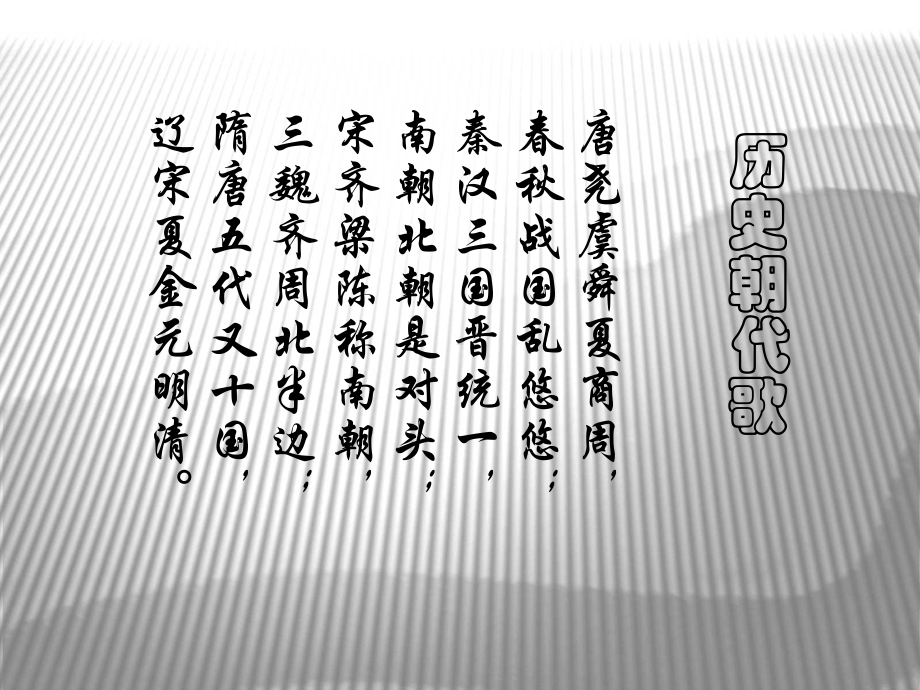 历史朝代歌
唐尧虞舜夏商周，
春秋战国乱悠悠；
秦汉三国晋统一，
南朝北朝是对头；
宋齐梁陈称南朝，
三魏齐周北半边；
隋唐五代又十国，
辽宋夏金元明清。